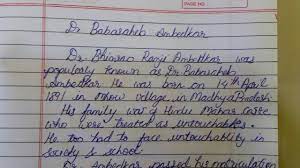 PAGE NO.
Dr Babasaheb Ambedkar
Dr. Bhimrao Ramji Ambedkar was
popularly known as Dr Babasaheb
Ambedkar. He was born on 14th April
1891 in Mhow village in Madhya Pradesh.
His family was a Hindu Mahar caste
who were treated as untouchables.
He too had to face untouchability in
society & school.
Dr. Ambedkar passed his matriculation